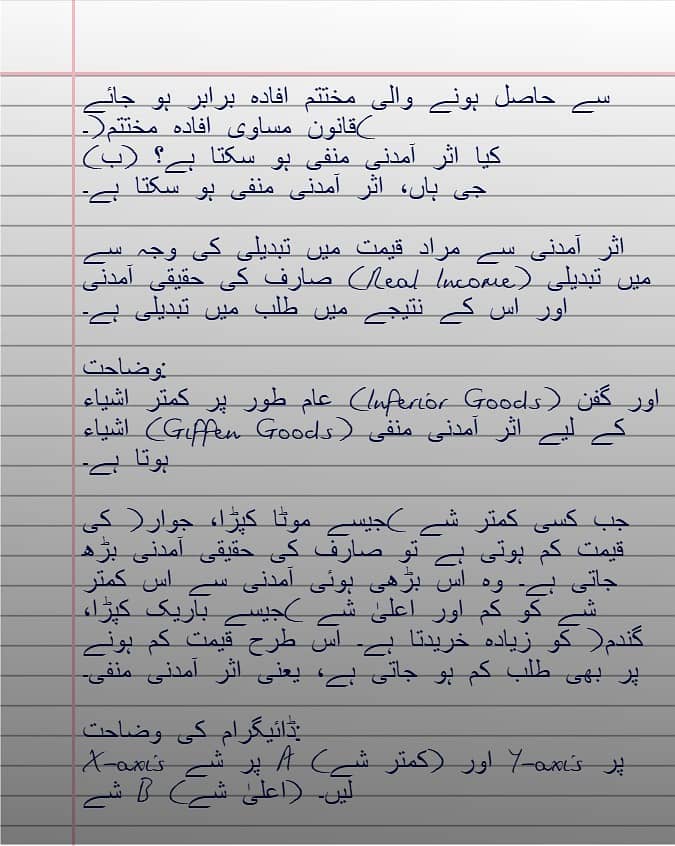 سے حاصل ہونے والی مختتم افادہ برابر ہو جائے
(قانون مساوی افادہ مختتم)۔
(ب) کیا اثر آمدنی منفی ہو سکتا ہے؟
جی ہاں، اثر آمدنی منفی ہو سکتا ہے۔
اثر آمدنی سے مراد قیمت میں تبدیلی کی وجہ سے
صارف کی حقیقی آمدنی (Real Income) میں تبدیلی
اور اس کے نتیجے میں طلب میں تبدیلی ہے۔
وضاحت:
عام طور پر کمتر اشیاء (Inferior Goods) اور گفن
اشیاء (Giffen Goods) کے لیے اثر آمدنی منفی
ہوتا ہے۔
جب کسی کمتر شے (جیسے موٹا کپڑا، جوار) کی
قیمت کم ہوتی ہے تو صارف کی حقیقی آمدنی بڑھ
جاتی ہے۔ وہ اس بڑھی ہوئی آمدنی سے اس کمتر
شے کو کم اور اعلیٰ شے (جیسے باریک کپڑا،
گندم) کو زیادہ خریدتا ہے۔ اس طرح قیمت کم ہونے
پر بھی طلب کم ہو جاتی ہے، یعنی اثر آمدنی منفی۔
ڈائیگرام کی وضاحت:
X-axis پر شے A (کمتر شے) اور Y-axis پر
شے B (اعلیٰ شے) لیں۔